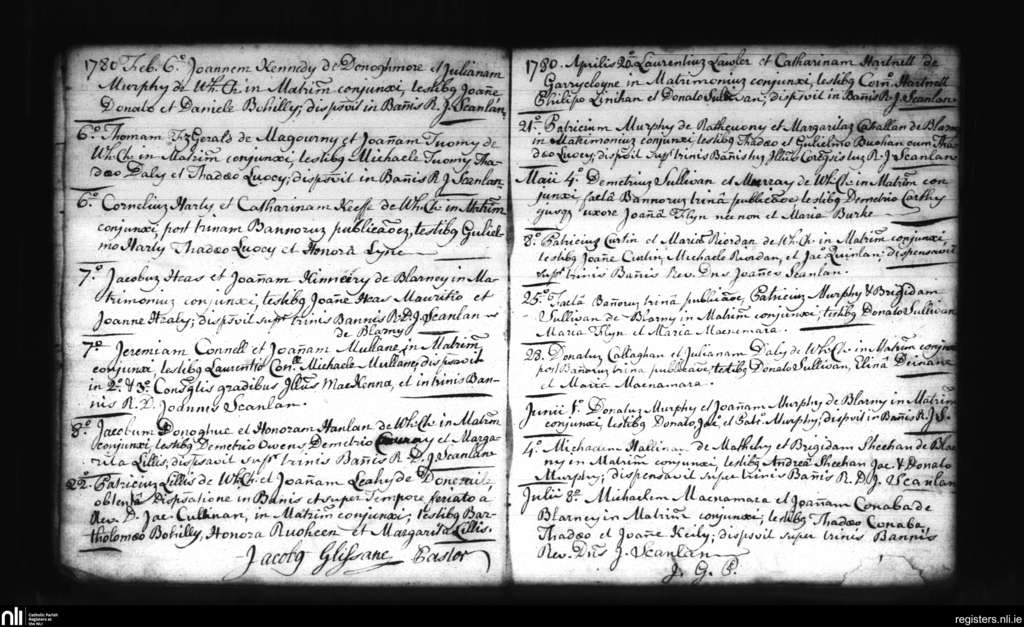 1780 Feb. 6.° Joannem Kennedy de Donoghmore et Julianam
Murphy de Wh.Ch. in Matrim̄ conjunxi, testibq Joañe
Donalo et Daniele Bohilly; dispsvit in Bañis R. J. Scanlan.
6.° Thomam FitzGerald de Magourny et Joañam Tuomy de
Wh.Ch. in Matrim̄ conjunxi, testibq Michaele Tuomy Tha-
dæo Daly et Thadæo Lucey; dispsvit in Bañis R. J. Scanlan
6.° Cornelius Harly et Catharinam Keefe de Wh.Ch. in Matrim̄
conjunxi, post trinam Bannoruz publicãoez, testibq Guliel-
mo Harly Thadæo Lucey et Honora Lyne
7.° Jacobuz Heas et Joañam Kinneery de Blarney in Ma-
trimoniuz conjunxi, testibq Joañe Heas Mauritio et
Joanne Healy; dispsvit supr trinis Bannis R.D.J. Scanlan
de Blarny
7.° Jeremiam Connell et Joañam Mullane in Matrim̄
conjunxi, testibq Laurentio Con.ll Michaele Mullane; dispsvit
in 2.° & 3.° Cons̃glis gradibus Illũs MacKenna, et in trinis Ban-
nis R. D. Joannes Scanlan.
8.° Jacobum Donoghue et Honoram Hanlan de Wh.Ch. in Matrim̄
conjunxi testibq Demetrio Owens Demetrio et Marga-
rita Lillis, dispsavit supr trinis Bañis R. D. J. Scanlane
22. Patricius Lillis de Wh.Ch. et Joañam Leahy de Doneraile,
obtenta Dispsatione in Banis et super Tempore feriato a
Rev. D. Jac. Cullinan, in Matrim̄ conjunxi; testibq Bar-
tholomæo Bohilly, Honora Ruoheen et Margarita Lillis.
Jacobq Glissane Pastor
1780. Aprilis 20. Laurentiuz Lawler et Catharinam Hartnell de
Garrycloyne in Matrimoniuz conjunxi, testibq Corn. Hartnell
Philipo Linihan et Donato Sullivan; dispsvit in Bañis R. J. Scanlan
21.° Patricium Murphy de Rathcuony et Margaritaz Caballan de Blarny
in Matrimoniuz conjunxi, testibq Thadæo et Gulielmo Buohan cum Tha-
dæo Lucey; dispsvit supr trinis Banistuz R. J. Scanlan
Maii 4.° Demetriuz Sullivan et Murray de Wh.Ch. in Matrim̄ con
junxi factâ Bannoruz trinâ publicãoe testibq Demetrio Carthy
jusqz uxore Joañâ Flyn nec non et Maria Burke
8.° Patriciuz Curtin et Mariã Riordan de Wh.Ch. in Matrim̄ conjunxi,
testibq Joañe Curtin, Michaele Riordan, et Jac. Quinlan: dispensavit
supr trinis Bañis Rev. Dns Joañes Scanlan.
25.° Factâ Bañoruz trinâ publicãoe, Patriciuz Murphy & Brigidam
Sullivan de Blarny in Matrim̄ conjunxi; testibq Donato Sullivan
Maria Flyn et Maria Macnamara.
28. Donatuz Callaghan et Julianam Daly de Wh.Ch. in Matrim̄ conjunxi
post Bañoruz trina publicãoe, testibq Donato Sullivan, Elinâ Dinane
et Maria Macnamara.
Junii 1.° Donatuz Murphy et Joañam Murphy de Blarny in Matrim̄
conjunxi, testibq Donato, Jac. et Galr. Murphy; dispsvit in Bañis R. J. S.
4.° Michaelem Hallinan de Mathehy et Brigidam Sheehan de Blar
ny in Matrim̄ conjunxi, testibq Andrea Sheehan Jac. & Donato
Murphy; dispensavit super trinis Bañis R. D. J. Scanlan
Julii 8.° Michaelem Macnamara et Joañam Conaba de
Blarney in Matrim̄ conjunxi; testibq Thadæo Conaba,
Thadæo et Joañe Keily; dispsvit super trinis Bannis
Rev. Dñs J. Scanlan
J. G. P.
nli
Catholic Parish
Registers at
the NLI
registers.nli.ie